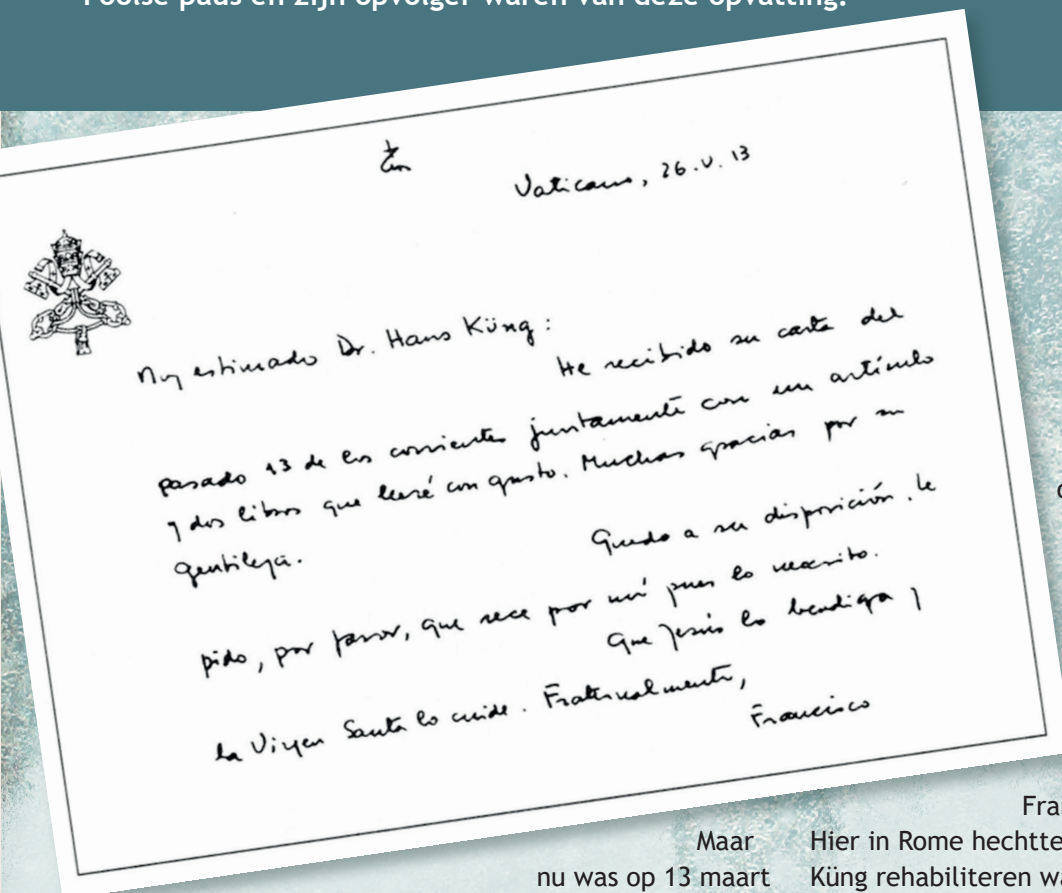 Poolse paus en zijn opvolger waren van deze opvatting.
Vaticano, 26.V.13
Muy estimado Dr. Hans Küng:
He recibido su carta del
pasado 13 de los corrientes juntamente con un artículo
y dos libros que leeré con gusto. Muchas gracias por su
gentileza.
Quedo a su disposición. Le
pido, por favor, que rece por mí pues lo necesito.
Que Jesús lo bendiga y
la Virgen Santa lo cuide. Fraternalmente,
Francisco
Fra
Maar
nu was op 13 maart
Hier in Rome hechtte
Küng rehabiliteren wa